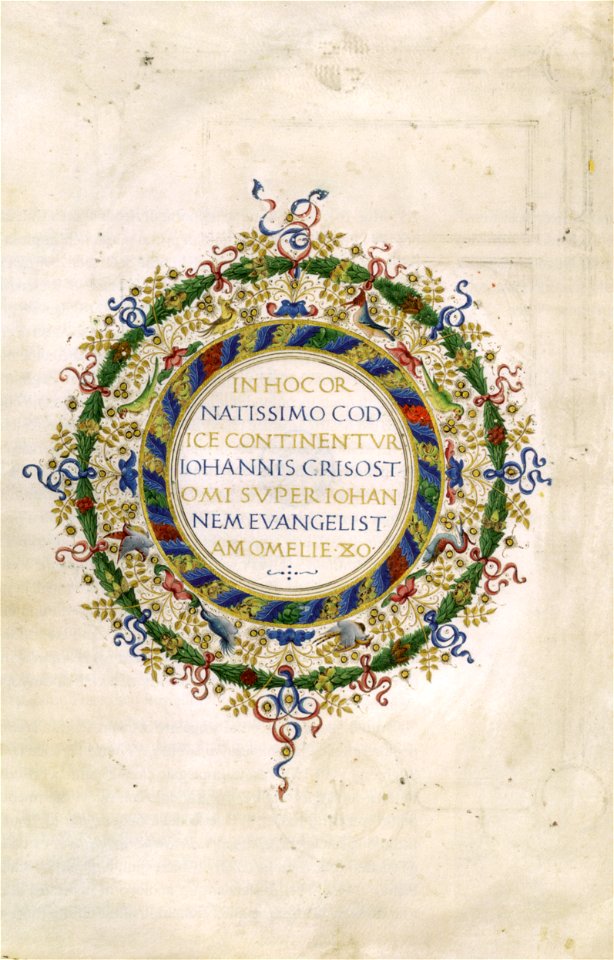 IN HOC OR
NATISSIMO COD
ICE CONTINENTVR
IOHANNIS GRISOST
OMI SVPER IOHAN
NEM EVANGELIST
AM OMELIE·XO·